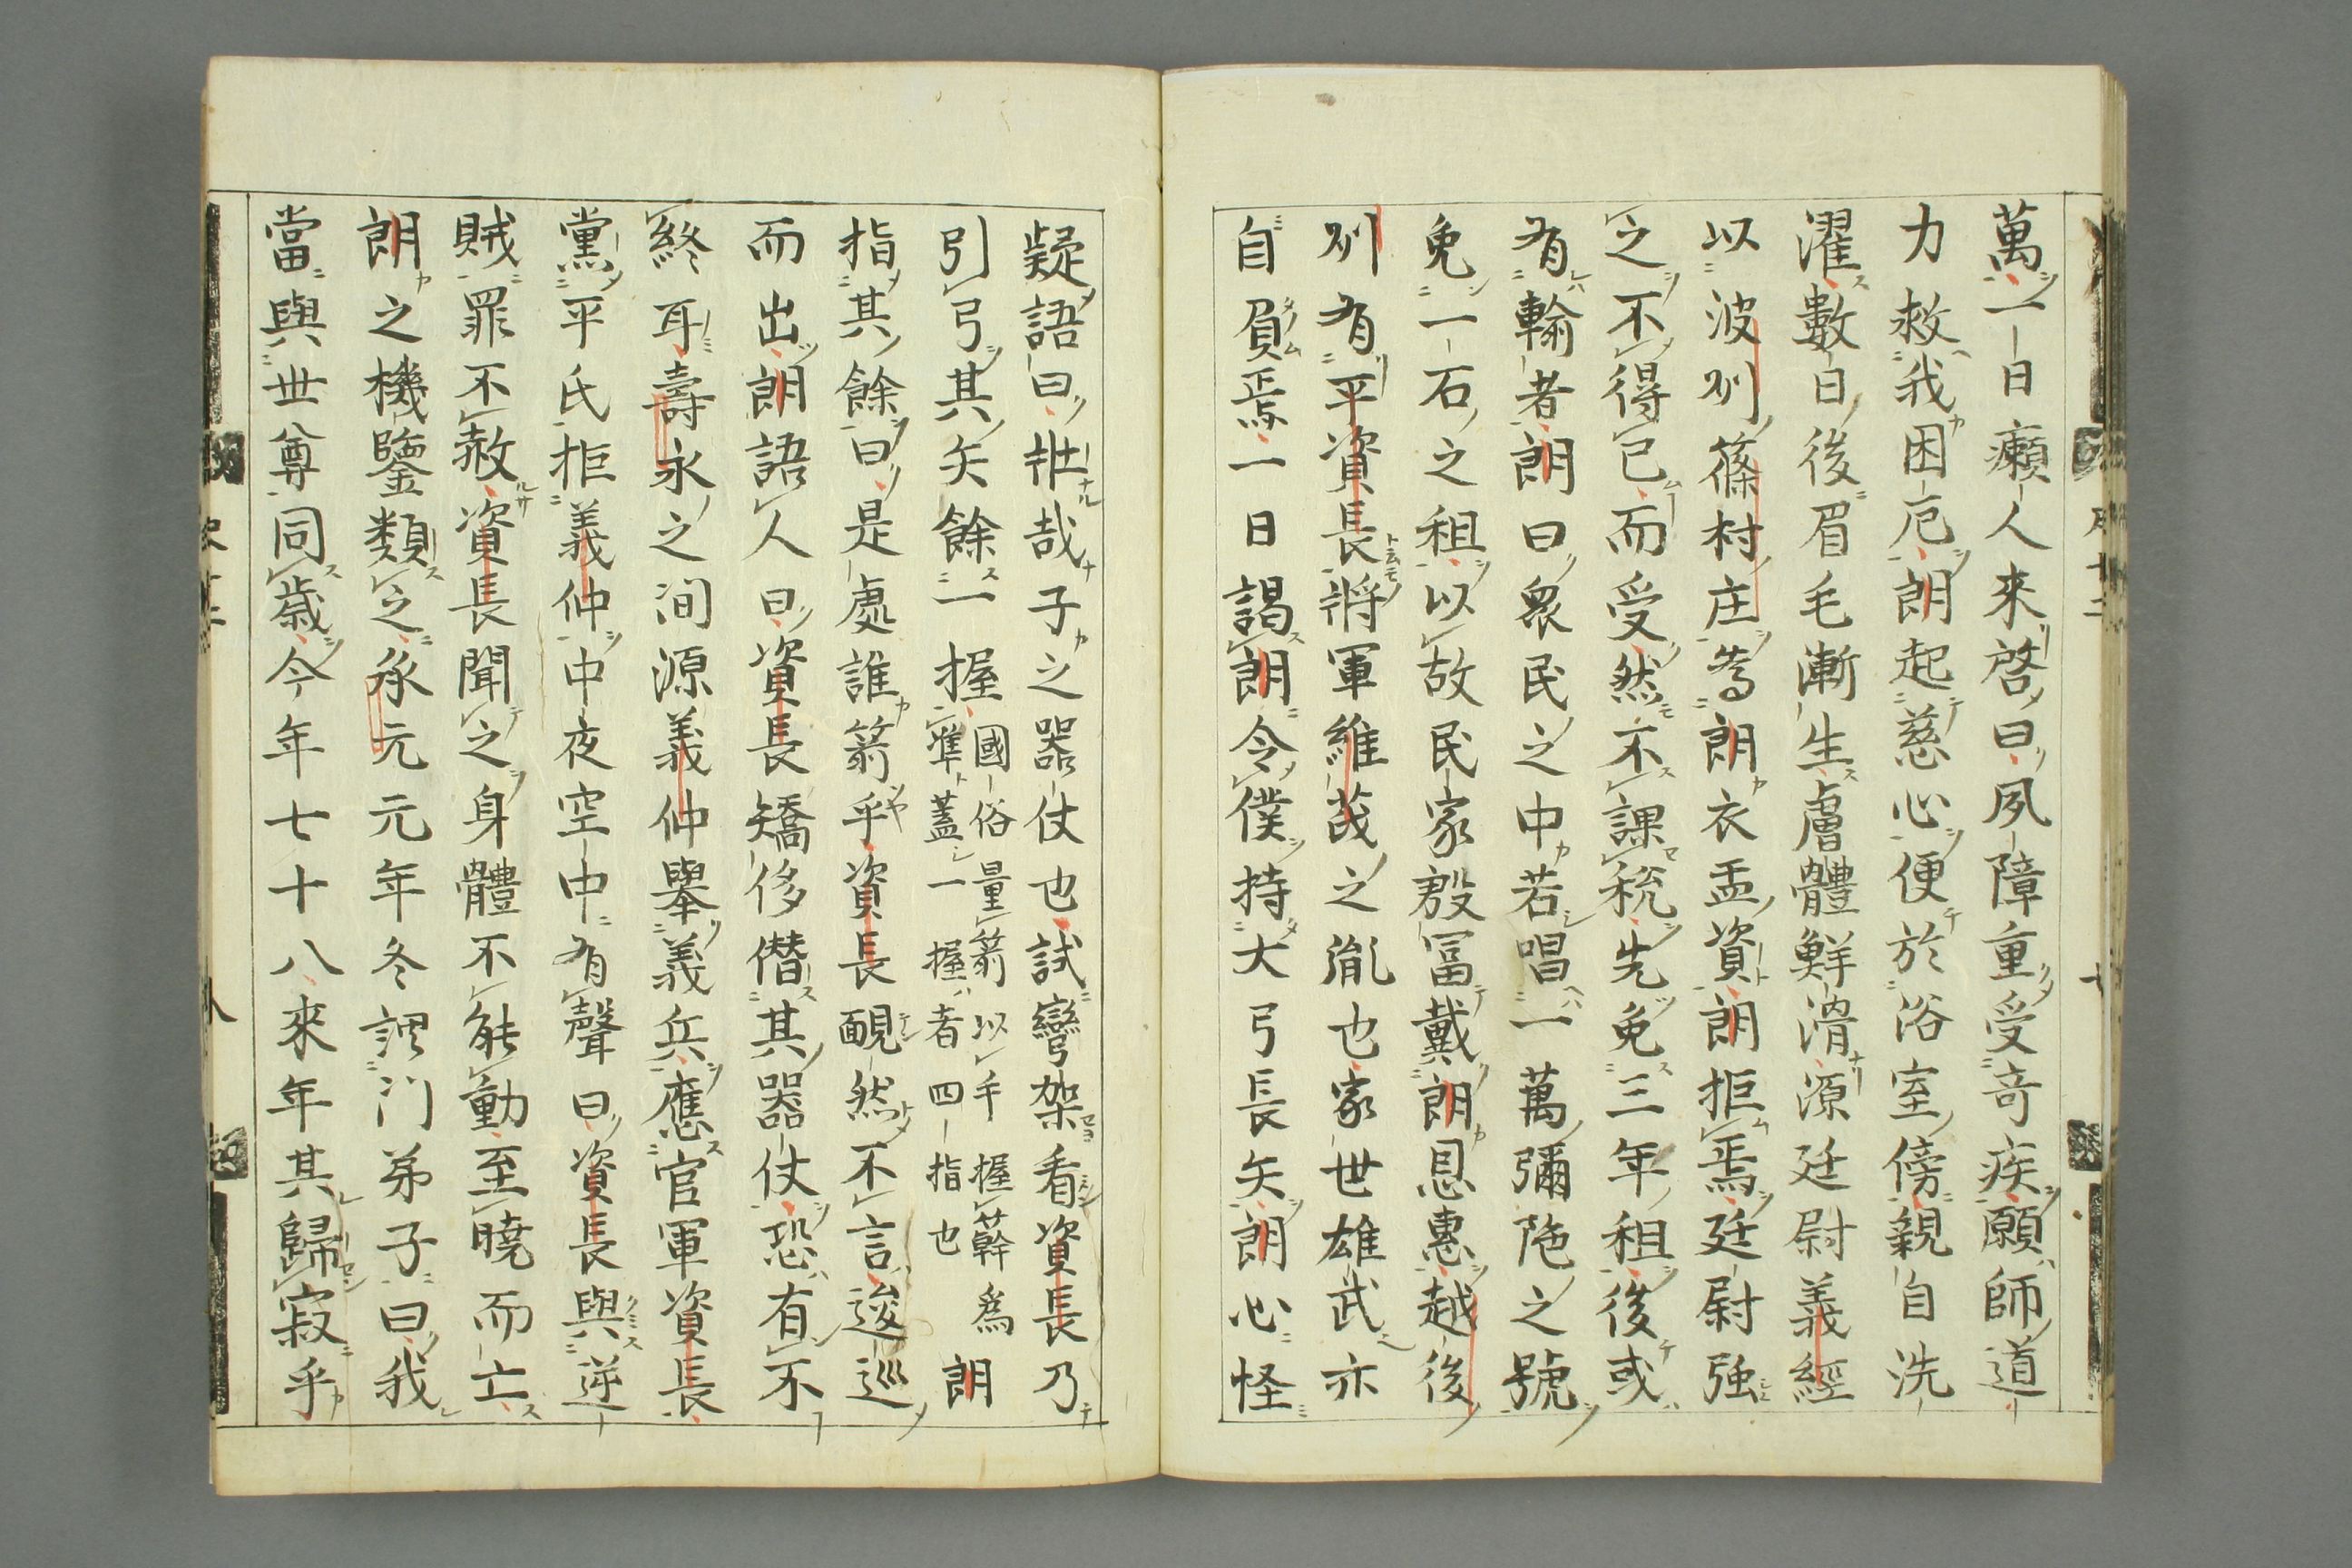 萬一日癩人來啓曰夙障重受奇疾願師道
力救我困厄朗起慈心便於浴室傍親自洗
濯數日後眉毛漸生膚體鮮滑源廷尉義經
以波刕篠村庄爲朗衣盂資朗拒焉廷尉强
之不得已而受然不課稅先免三年租後或
有輸者朗曰衆民之中若唱一萬彌陁之號
免一石之租以故民家殷冨戴朗恩惠越後
刕有平資長將軍維茂之胤也家世雄武亦
自負焉一日謁朗令僕持大弓長矢朗心怪
疑語曰壯哉子之器仗也試彎架看資長乃
引弓其矢餘一握國俗量箭以手握簳爲準蓋一握者四指也朗
指其餘曰是處誰箭乎資長靦然不言逡巡
而出朗語人曰資長矯侈僭其器仗恐有不
終耳壽永之間源義仲擧義兵應官軍資長
黨平氏拒義仲中夜空中有聲曰資長與逆
賊罪不赦資長聞之身體不能動至曉而亡
朗之機鑒類之承元元年冬謂門弟子曰我
當與世尊同歲今年七十八來年其歸寂乎